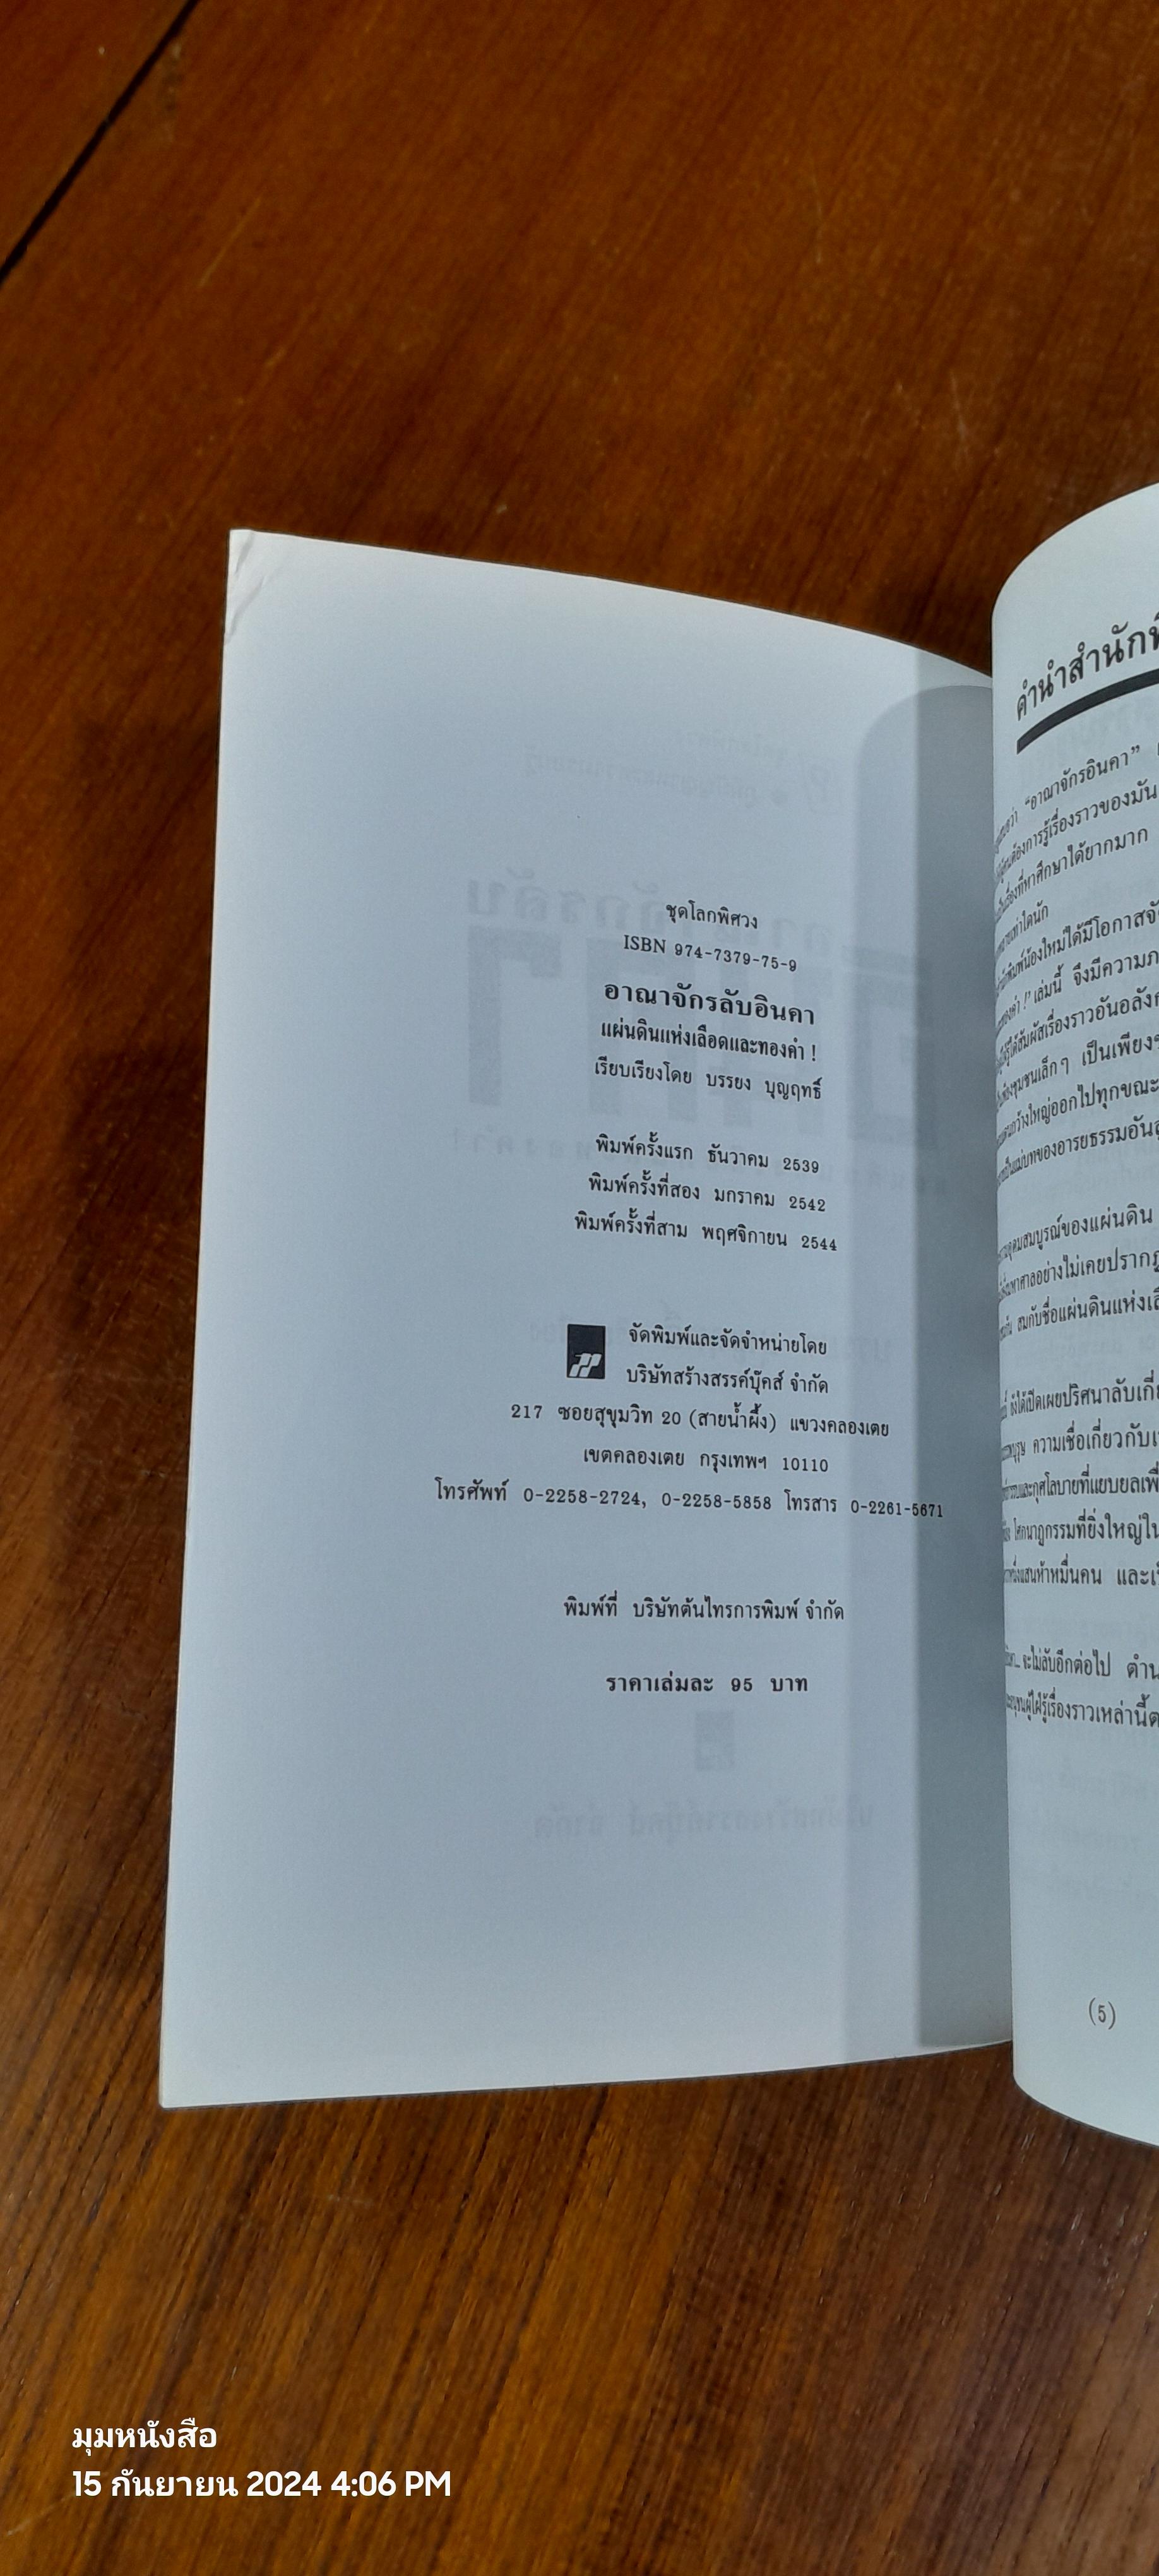 ชุดโลกพิศวง
ISBN 974-7379-75-9
อาณาจักรลับอินคา
แผ่นดินแห่งเลือดและทองคำ !
เรียบเรียงโดย บรรยง บุญฤทธิ์
พิมพ์ครั้งแรก ธันวาคม 2539
พิมพ์ครั้งที่สอง มกราคม 2542
พิมพ์ครั้งที่สาม พฤศจิกายน 2544
จัดพิมพ์และจัดจำหน่ายโดย
บริษัทสร้างสรรค์บุ๊คส์ จำกัด
217 ซอยสุขุมวิท 20 (สายน้ำผึ้ง) แขวงคลองเตย
เขตคลองเตย กรุงเทพฯ 10110
โทรศัพท์ 0-2258-2724, 0-2258-5858 โทรสาร 0-2261-5671
พิมพ์ที่ บริษัทต้นไทรการพิมพ์ จำกัด
ราคาเล่มละ 95 บาท
คำนำสำนัก
"อาณาจักรอินคา"
ต้องการรู้เรื่องราวของมัน
เป็นเรื่องที่หาศึกษาได้ยากมาก
เท่าใดนัก
พิมพ์น้องใหม่ได้มีโอกาส
ทองคำ !" เล่มนี้ จึงมีความ
ได้สัมผัสเรื่องราวอัน
ชุมชนเล็กๆ เป็นเพียง
กว้างใหญ่ออกไปทุกขณะ
เป็นแม่บทของอารยธรรมอัน
อุดมสมบูรณ์ของแผ่นดิน
มหาศาลอย่างไม่เคยปรากฏ
สมกับชื่อแผ่นดินแห่ง
ยังได้เปิดเผยปริศนาลับ
ความเชื่อเกี่ยวกับ
และกุศโลบายที่แยบยล
โศกนาฏกรรมที่ยิ่งใหญ่ใน
แสนห้าหมื่นคน และ
จะไม่ลับอีกต่อไป
ผู้ใฝ่รู้เรื่องราวเหล่านี้
(5)
มุมหนังสือ
15 กันยายน 2024 4:06 PM